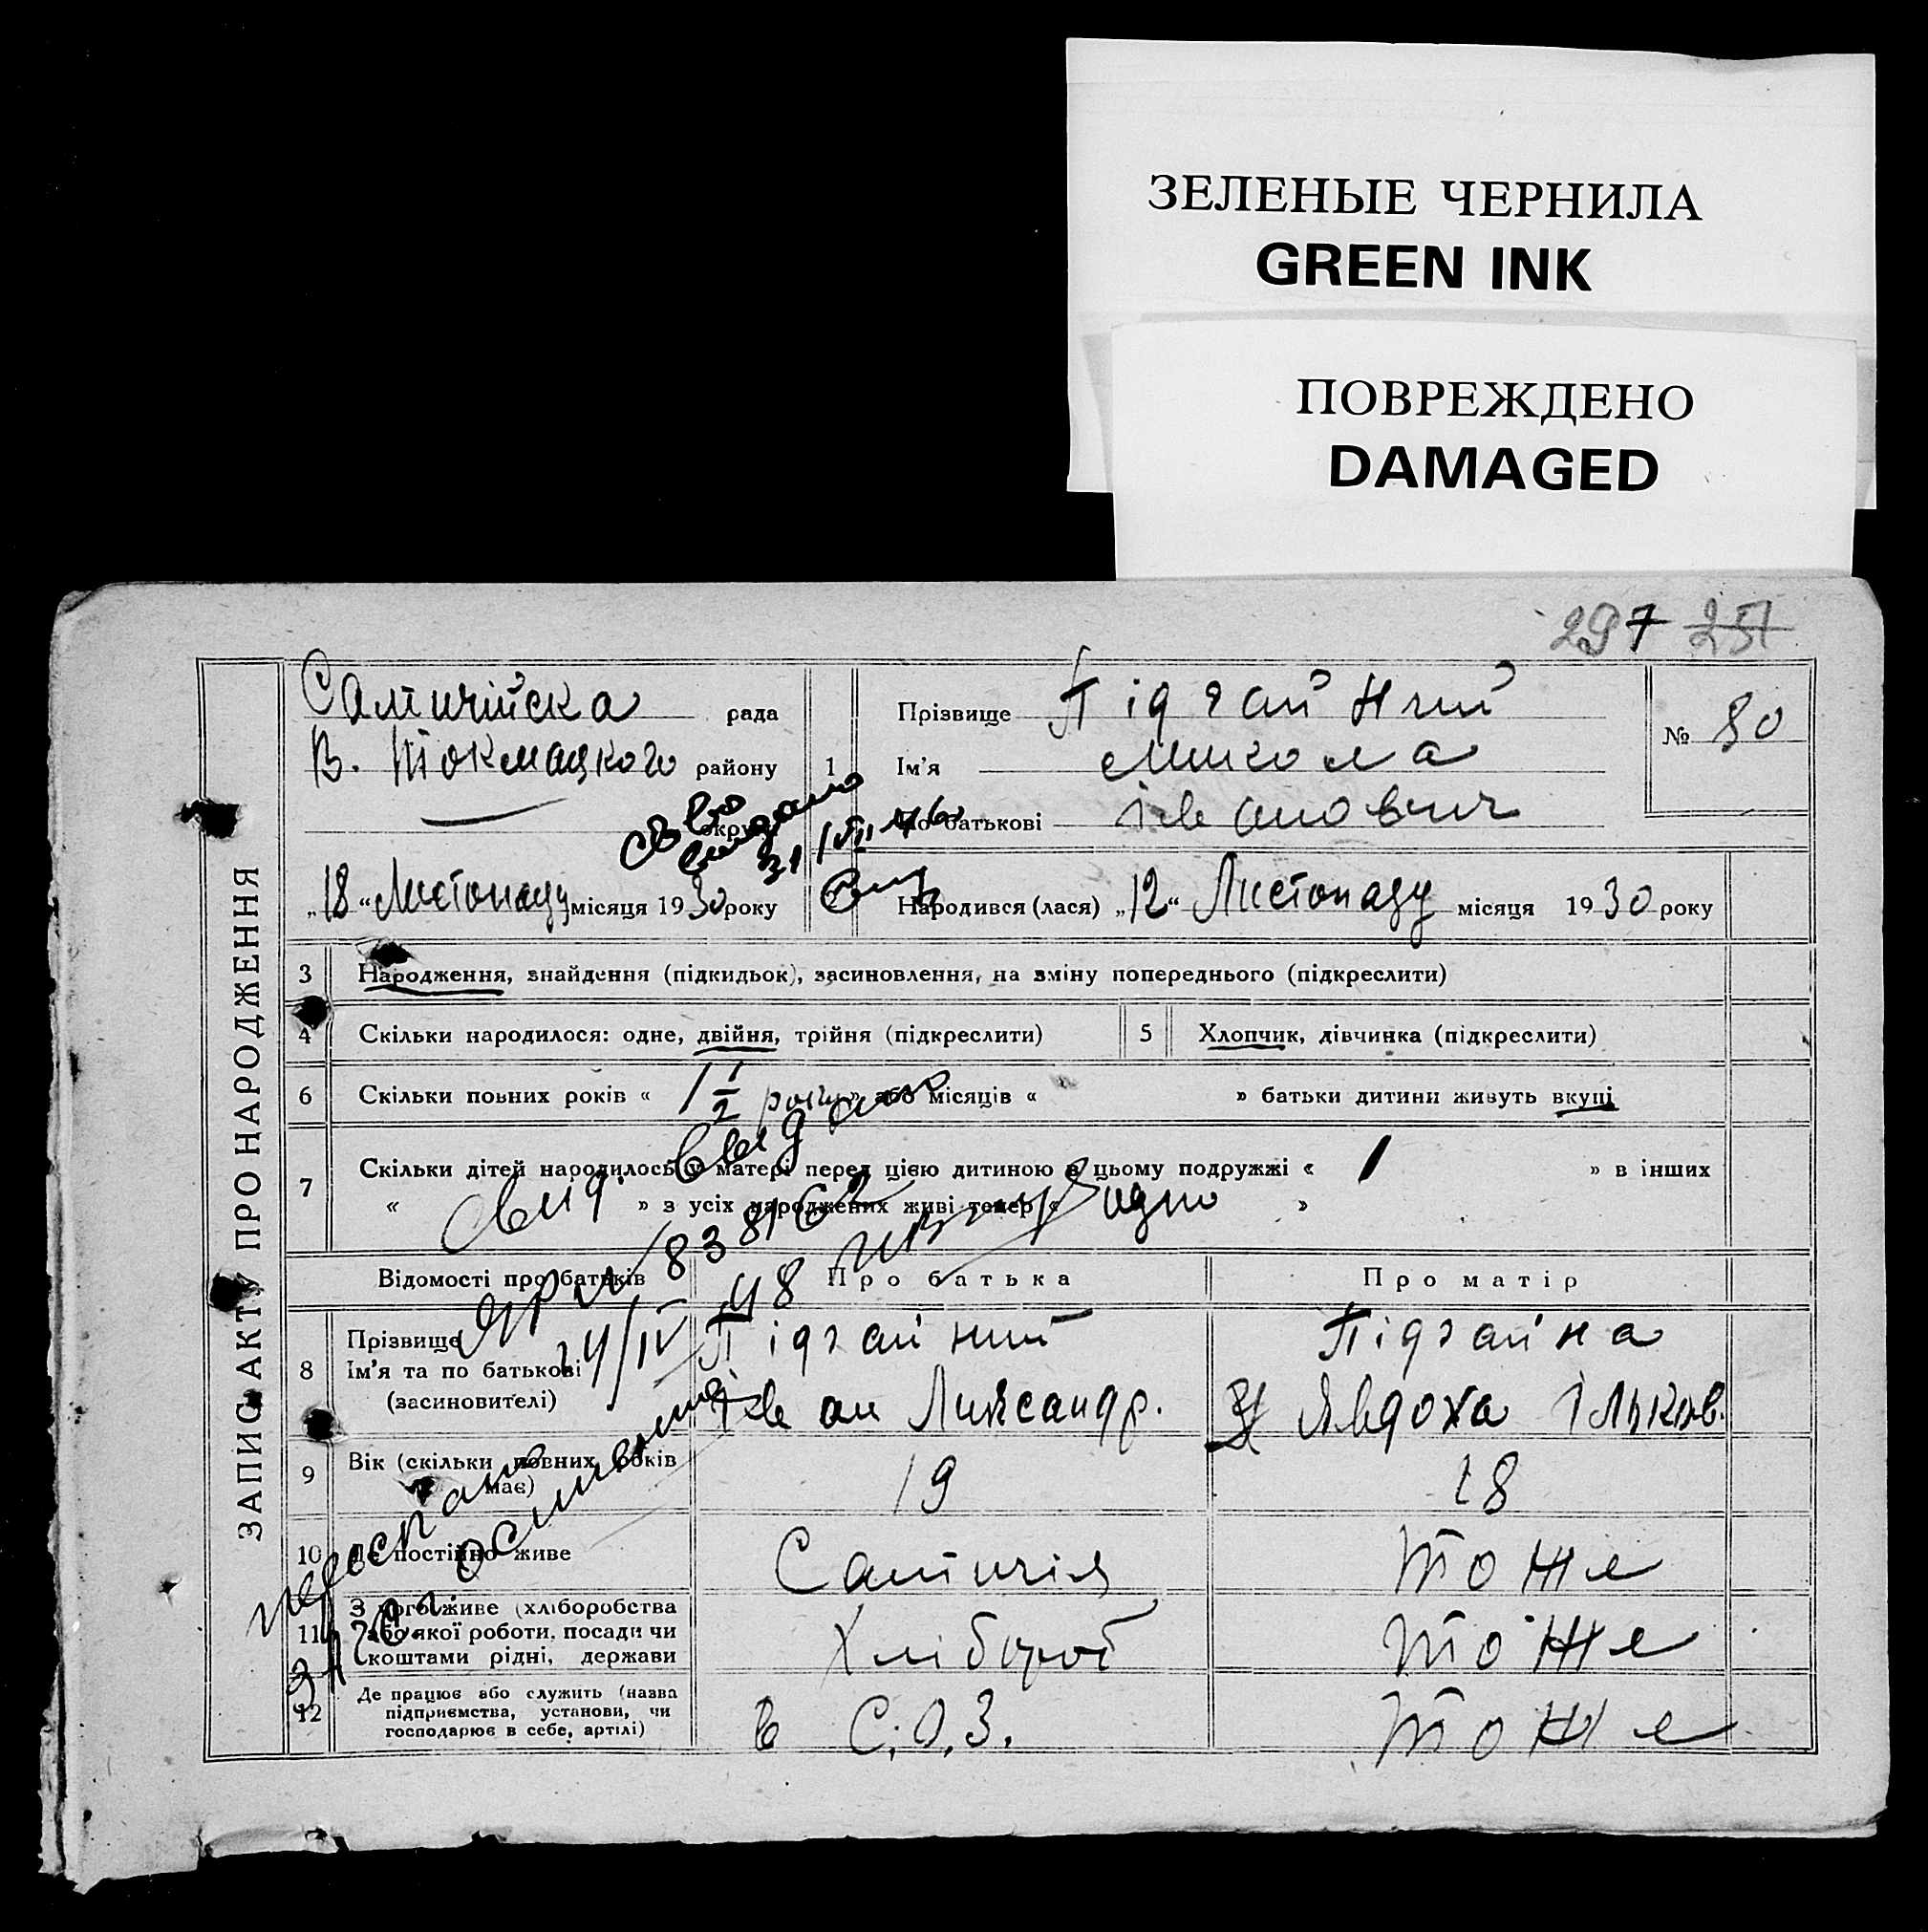 ЗЕЛЕНЫЕ ЧЕРНИЛА
GREEN INK
ПОВРЕЖДЕНО
DAMAGED
297 251
ЗАПИС АКТУ ПРО НАРОДЖЕННЯ
Салтичійска рада
В. Токмацкого району
округи
"18" Листопаду місяця 1930 року
1
Прізвище Підгайний
Ім'я Микола
По батькові Іванович
№ 80
Народився (лася) "12" Листопаду місяця 1930 року
св во
выдано
31/VII 46
3 Народження, знайдення (підкидьок), засиновлення, на зміну попереднього (підкреслити)
4 Скільки народилося: одне, двійня, трійня (підкреслити)
5 Хлопчик, дівчинка (підкреслити)
6 Скільки повних років « 1 1/2 року » або місяців « » батьки дитини живуть вкупі
7 Скільки дітей народилось у матері перед цією дитиною в цьому подружжі « 1 » в інших
« » з усіх народжених живі тепер « одно »
свид. выдано
838162
24/IV 48
Відомості про батьків
Про батька
Про матір
8 Прізвище
Ім'я та по батькові
(засиновителі)
Підгайний
Іван Лександр.
Підгайна
Явдоха Ільков.
9 Вік (скільки повних років має)
19
18
10 Де постійно живе
Салтичія
тоже
11 З чого живе (хліборобства або якої роботи, посади чи коштами рідні, держави
Хлібороб
тоже
12 Де працює або служить (назва підприємства, установи, чи господарює в себе, артілі)
в С.О.З.
тоже